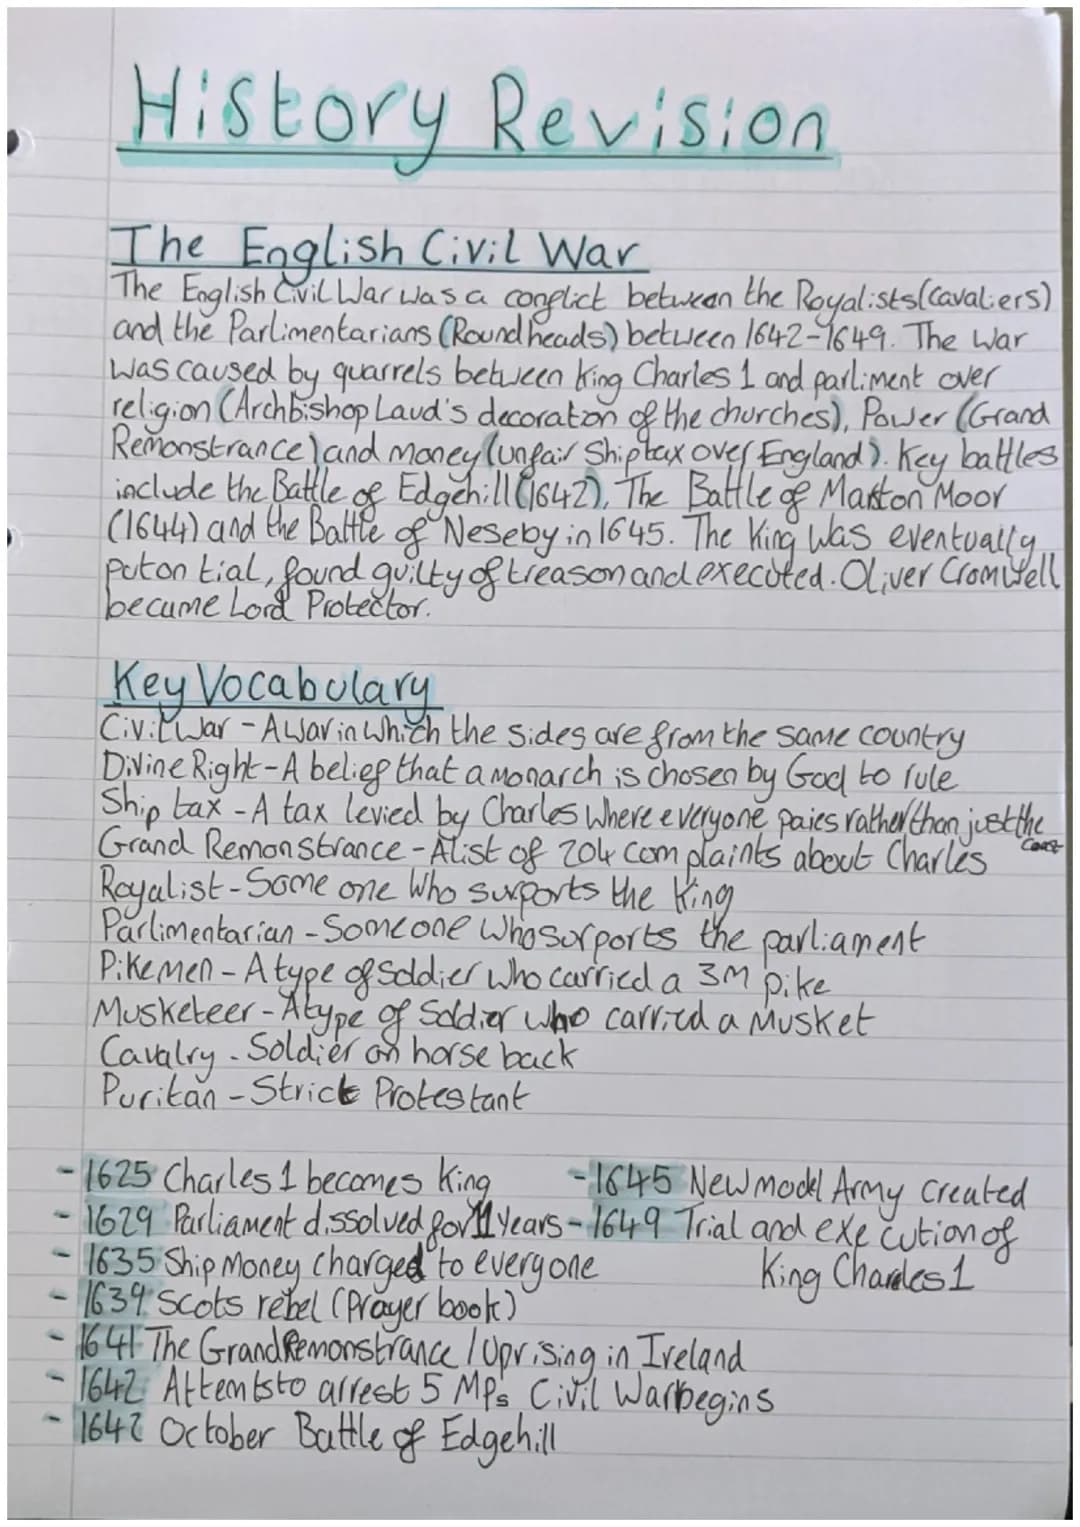 History Revision
The English Civil War
The English Civil War was a conflict between the Royalists (Cavaliers)
and the Parlimentarians (Roundheads) between 1642-1649. The War
was caused by quarrels between King Charles 1 and parliment over
religion (Archbishop Laud's decoration of the churches), Power (Grand
Remonstrance) and money (unfair Ship tax over England). Key battles
include the Battle of Edgehill (1642), The Battle of Marston Moor
(1644) and the Battle of Neseby in 1645. The King was eventually
put on tial, found guilty of treason and executed. Oliver Cromwell
became Lord Protector.
Key Vocabulary
Civil War - A War in which the sides are from the same country
Divine Right - A belief that a monarch is chosen by God to rule
Ship tax - A tax levied by Charles where everyone paies rather than just the coast
Grand Remonstrance - A list of 204 complaints about Charles
Royalist - Some one who surports the King
Parlimentarian - Someone who surports the parliament
Pikemen - A type of soldier who carried a 3M pike
Musketeer - A type of soldier who carried a Musket
Cavalry - Soldier on horse back
Puritan - Strict Protestant
- 1625 Charles 1 becomes King
- 1629 Parliament dissolved for 11 years
- 1635 Ship Money charged to everyone
- 1639 Scots rebel (Prayer book)
- 1641 The Grand Remonstrance / Uprising in Ireland
- 1642 Attemts to arrest 5 MPs Civil War begins
- 1642 October Battle of Edgehill
- 1645 New model Army created
- 1649 Trial and execution of
King Charles 1